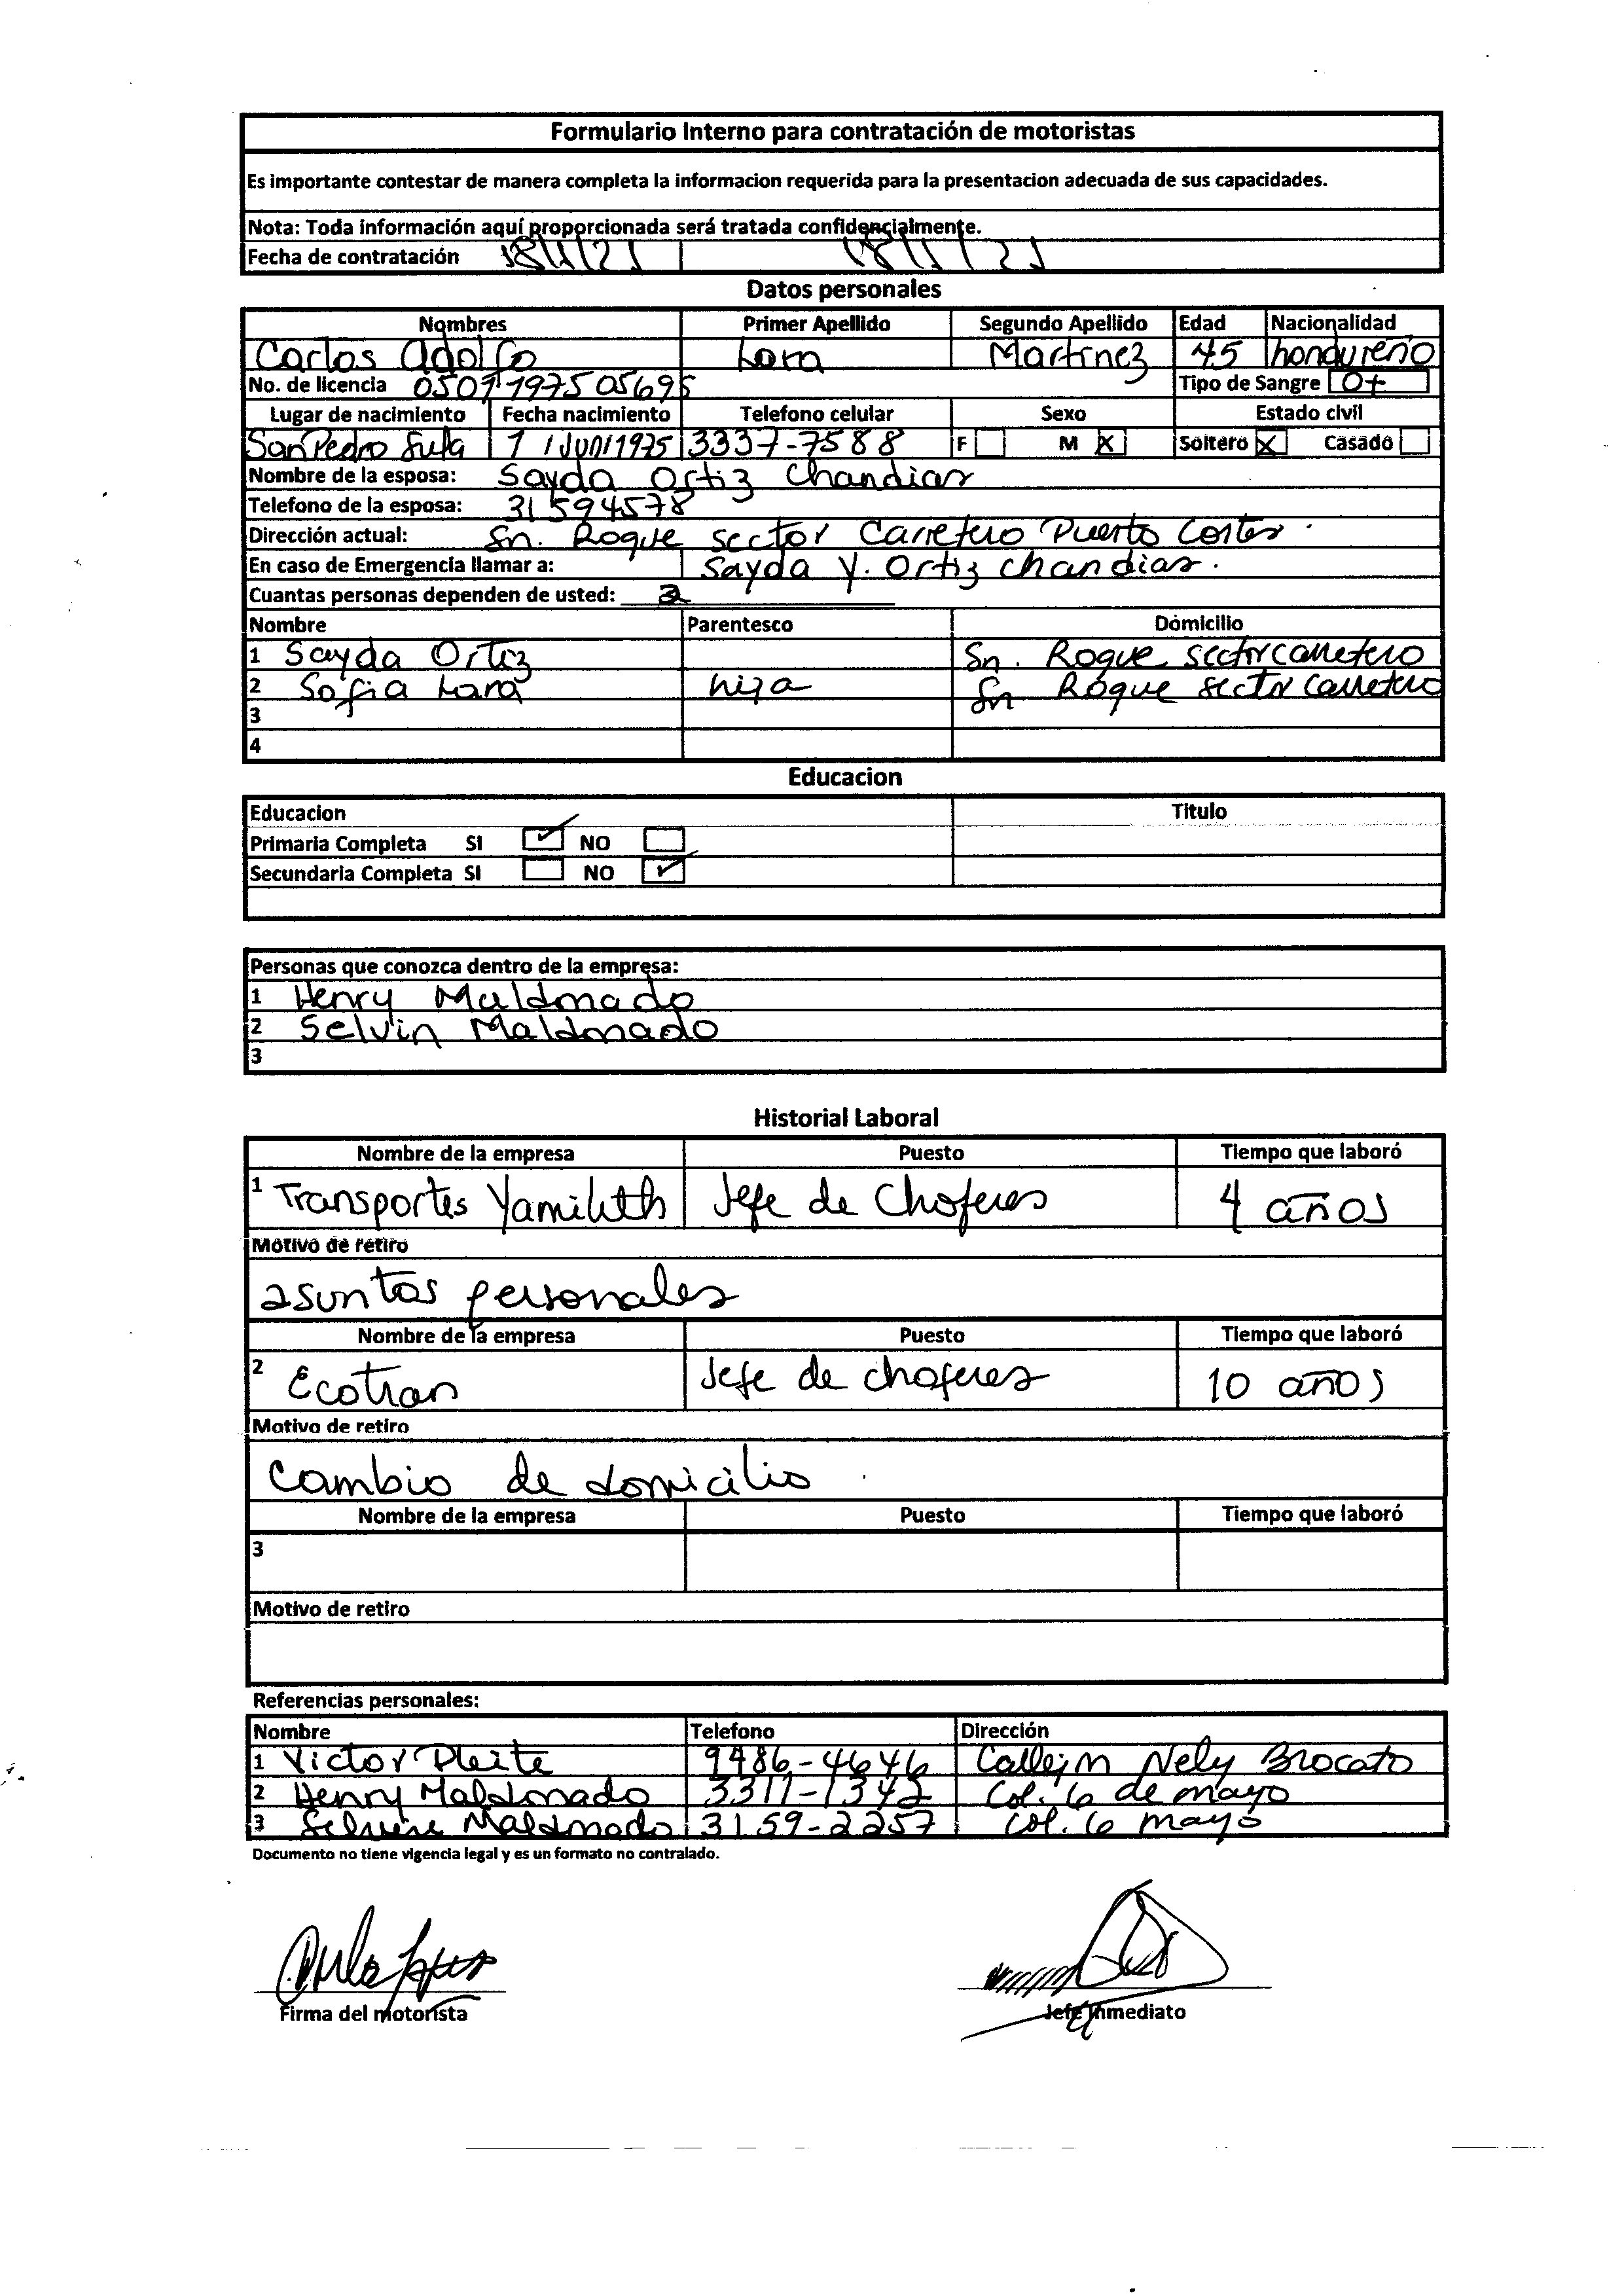 Formulario Interno para contratación de motoristas
Es importante contestar de manera completa la informacion requerida para la presentacion adecuada de sus capacidades.
Nota: Toda información aquí proporcionada será tratada confidencialmente.
Fecha de contratación 18/1/21 18/1/21
Datos personales
Nombres Primer Apellido Segundo Apellido Edad Nacionalidad
Carlos Adolfo Lara Martinez 45 hondureño
No. de licencia 0501197505695 Tipo de Sangre O+
Lugar de nacimiento Fecha nacimiento Telefono celular Sexo Estado civil
San Pedro Sula 1 / Jun/1975 3337-7588 F M X Soltero X Casado
Nombre de la esposa: Sayda Ortiz Chandias
Telefono de la esposa: 31594578
Dirección actual: Sn. Roque sector Carretero Puerto Cortes.
En caso de Emergencia llamar a: Sayda Y. Ortiz Chandias.
Cuantas personas dependen de usted: 2
Nombre Parentesco Domicilio
1 Sayda Ortiz Sn. Roque sector carretero
2 Sofia Lara hija Sn Roque sector carretero
3
4
Educacion
Educacion Titulo
Primaria Completa SI ✓ NO
Secundaria Completa SI NO ✓
Personas que conozca dentro de la empresa:
1 Henry Maldonado
2 Selvin Maldonado
3
Historial Laboral
Nombre de la empresa Puesto Tiempo que laboró
1 Transportes Yamileth Jefe de Choferes 4 años
Motivo de retiro
asuntos personales
Nombre de la empresa Puesto Tiempo que laboró
2 Ecotran Jefe de choferes 10 años
Motivo de retiro
Cambio de domicilio
Nombre de la empresa Puesto Tiempo que laboró
3
Motivo de retiro
Referencias personales:
Nombre Telefono Dirección
1 Victor Pleite 9486-4646 Callejn Nely Brocato
2 Henry Maldonado 3311-1342 Col. 6 de mayo
3 Maldonado 3159-2257 Col. 6 mayo
Documento no tiene vigencia legal y es un formato no contralado.
Firma del motorista Jefe Inmediato